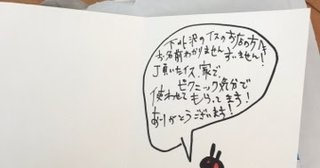 下北沢のイスのお店の方へ
お名前わかりません すいません!
頂いたイス、家で、
ピクニック気分で
使わせてもらってます!
ありがとうございます!